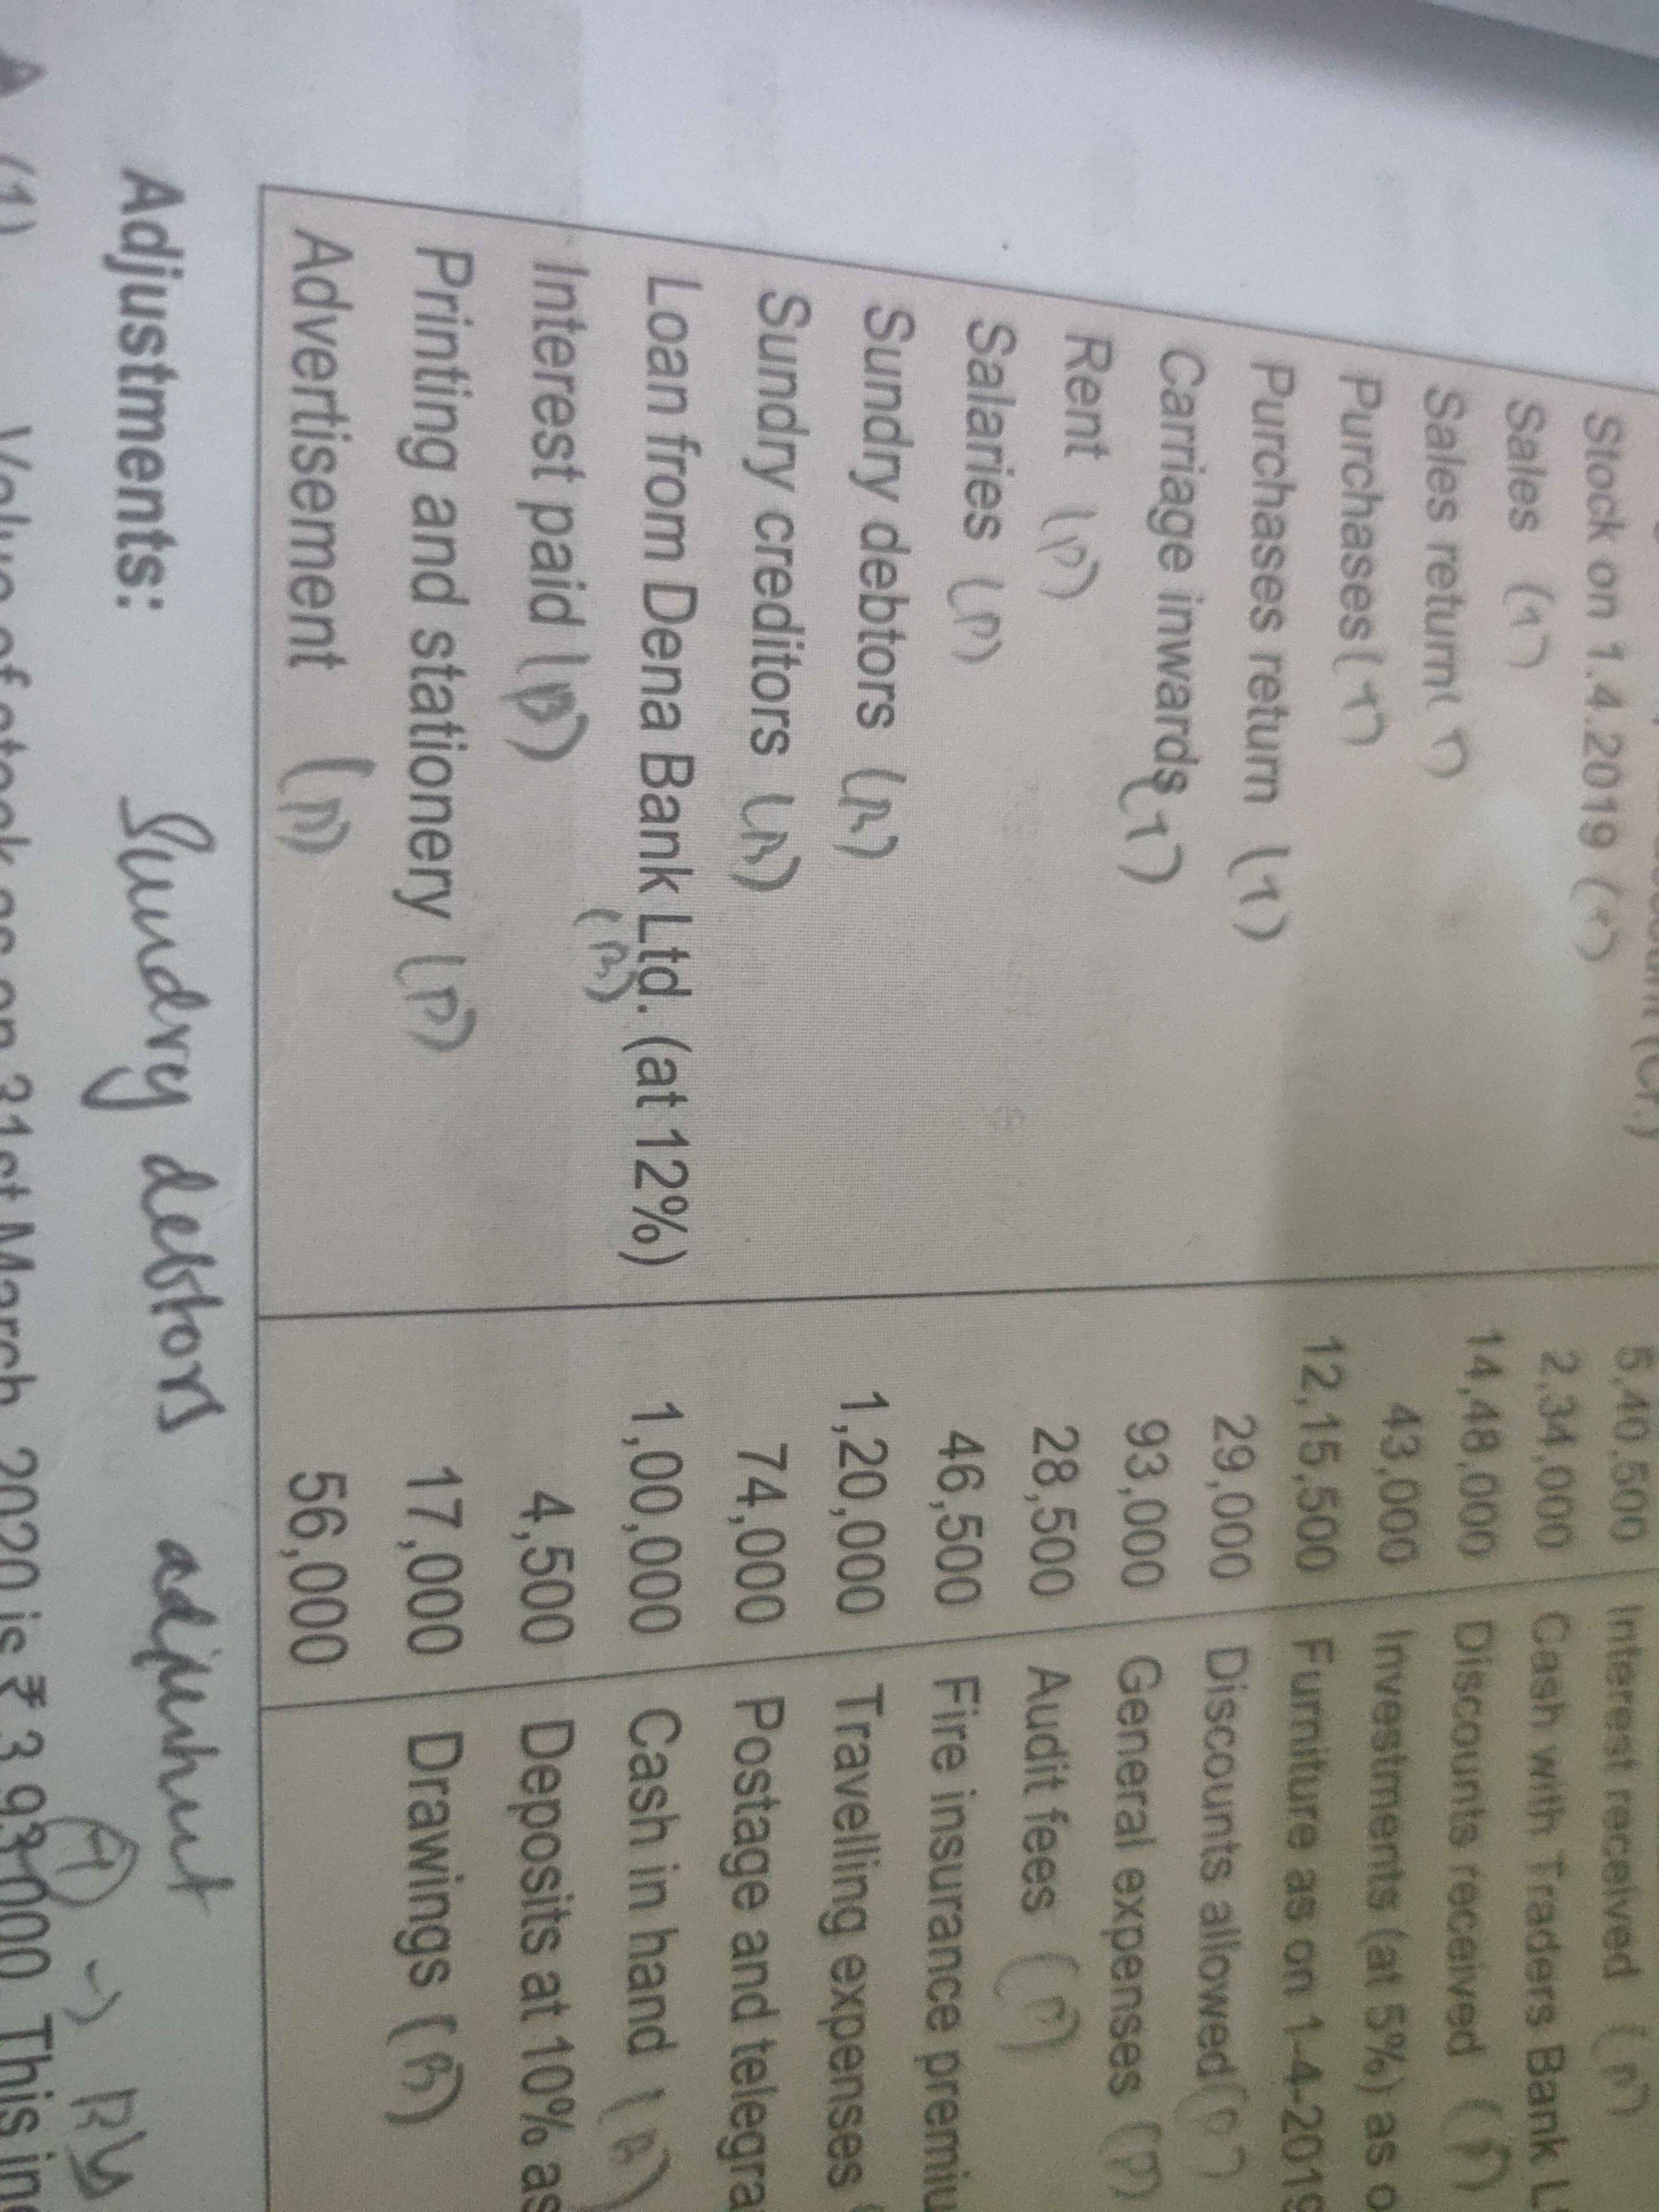 (Cr.) 5,40,500 Interest received (P)
Stock on 1.4.2019 (T) 2,34,000 Cash with Traders Bank L
Sales (T) 14,48,000 Discounts received (P)
Sales return (T) 43,000 Investments (at 5%) as o
Purchases (T) 12,15,500 Furniture as on 1-4-2019
Purchases return (T) 29,000 Discounts allowed (P)
Carriage inwards (T) 93,000 General expenses (P)
Rent (P) 28,500 Audit fees (P)
Salaries (P) 46,500 Fire insurance premiu
Sundry debtors (B) 1,20,000 Travelling expenses
Sundry creditors (B) 74,000 Postage and telegra
Loan from Dena Bank Ltd. (at 12%) 1,00,000 Cash in hand (B)
(B)
Interest paid (P) 4,500 Deposits at 10% as
Printing and stationery (P) 17,000 Drawings (B)
Advertisement (P) 56,000
Adjustments: Sundry debtors adjustment
(1) Value of stock as on 31st March, 2020 is ₹ 3,93,000. This in